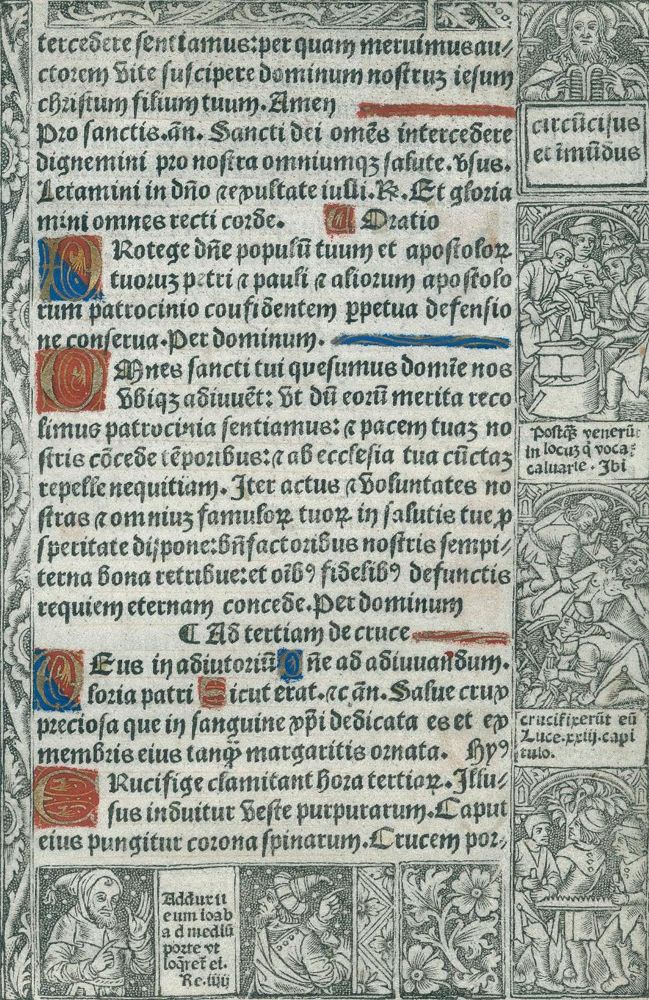 tercedere sentiamus: per quam meruimus au/
ctorem vite suscipere dominum nostruz iesum
christum filium tuum. Amen
Pro sanctis. an̄. Sancti dei omēs intercedere
dignemini pro nostra omniumqz salute. vsus.
Letamini in dn̄o ⁊ exultate iusti. ℟. Et gloria
mini omnes recti corde. Oratio
PRotege dn̄e populū tuum et apostoloꝝ
tuoruz petri ⁊ pauli ⁊ aliorum apostolo
rum patrocinio confidentem ꝑpetua defensio
ne conserua. Per dominum.
OMnes sancti tui quesumus domīe nos
vbiqz adiuuēt: vt dū eorū merita reco
limus patrocinia sentiamus: ⁊ pacem tuaz no
stris cōcede tēporibus: ⁊ ab ecclesia tua cūctaz
repelle nequitiam. Iter actus ⁊ voluntates no
stras ⁊ omniuz famuloꝝ tuoꝝ in salutis tue ꝓ
speritate dispone: bn̄factoribus nostris sempi/
terna bona retribue: et oībꝰ fidelibꝰ defunctis
requiem eternam concede. Per dominum
⸿ Ad tertiam de cruce
DEus in adiutoriū Dn̄e ad adiuuandum.
Gloria patri Sicut erat. ⁊c an̄. Salue crux
preciosa que in sanguine xp̄i dedicata es et ex
membris eius tanq̄ꝫ margaritis ornata. Hyꝰ
CRucifige clamitant hora tertiaꝝ. Illu/
sus induitur veste purpurarum. Caput
eius pungitur corona spinarum. Crucem por/
circūcisus
et īmūdus
Postq̄ꝫ venerūt
in locuz q̄ vocaꝭ
caluarie. Ibi
crucifixerūt eū
Luce. xxiij. capi
tulo.
Adduxit
eum ioab
ad mediū
porte vt
loq̄ret̄ ei.
Re. iiij